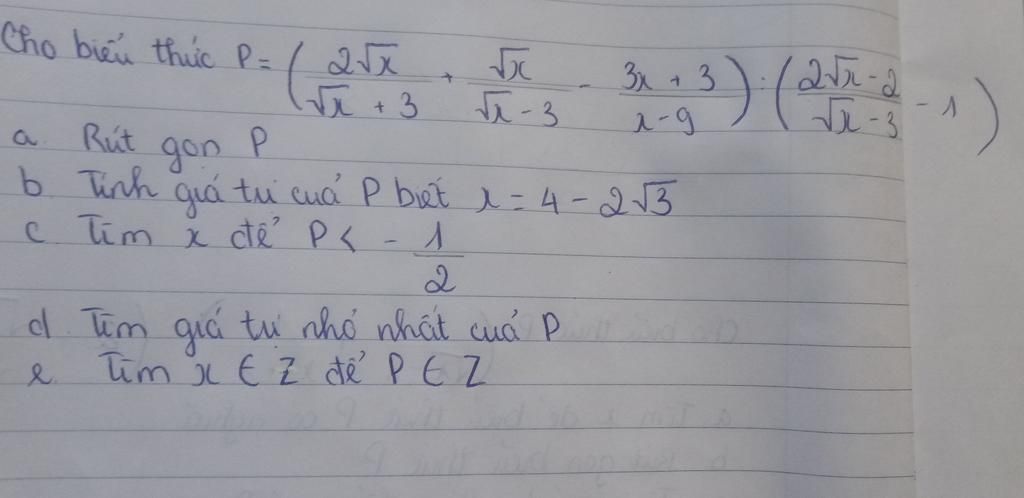 Cho biểu thức P = (2√x / (√x + 3) + √x / (√x - 3) - (3x + 3) / (x - 9)) : ((2√x - 2) / (√x - 3) - 1)
a. Rút gọn P
b Tính giá trị của P biết x = 4 - 2√3
c. Tìm x để P < - 1/2
d Tìm giá trị nhỏ nhất của P
e. Tìm x ∈ Z để P ∈ Z